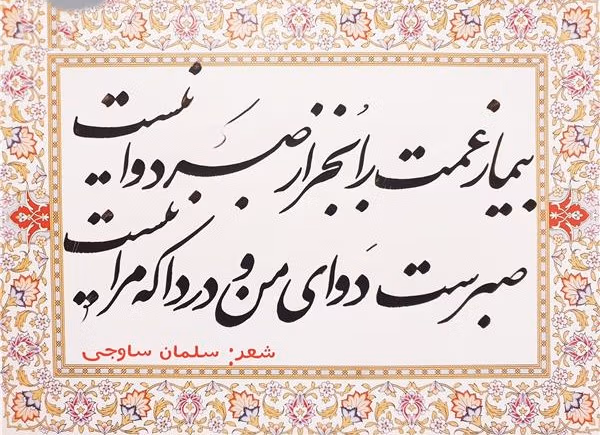 بیمار غمت را بُجز از صبر دوا نیست
صبرست دَوای من و دردا که مرا نیست
شعر: سلمان ساوجی